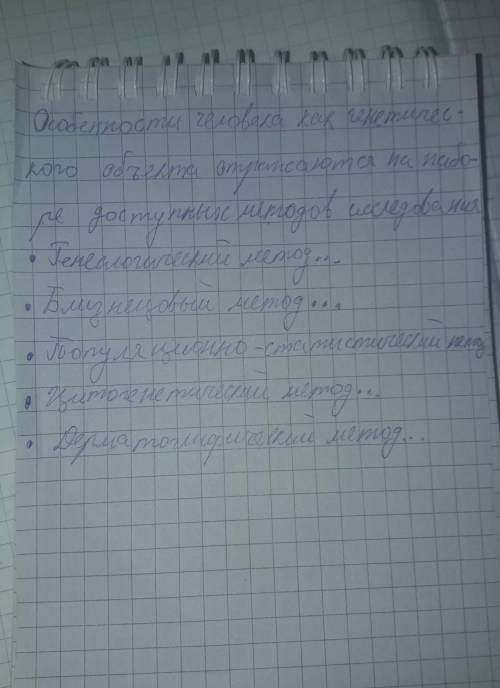 Особенности человека как генетичес-
кого объекта отражаются на набо-
ре доступных методов исследования
• Генеалогический метод...
• Близнецовый метод...
• Популяционно-статистический метод
• Цитогенетический метод...
• Дерматоглифический метод...